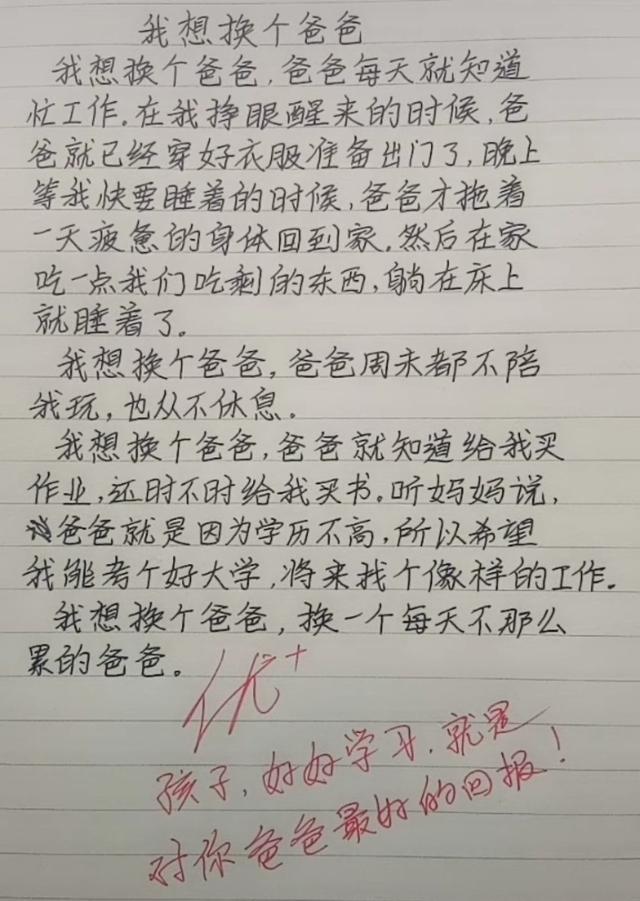 我想换个爸爸
我想换个爸爸,爸爸每天就知道
忙工作.在我挣眼醒来的时候,爸
爸就已经穿好衣服准备出门了,晚上
等我快要睡着的时候,爸爸才拖着
一天疲惫的身体回到家.然后在家
吃一点我们吃剩的东西,躺在床上
就睡着了。
我想换个爸爸,爸爸周末都不陪
我玩,也从不休息.
我想换个爸爸,爸爸就知道给我买
作业,还时不时给我买书.听妈妈说,
爸爸就是因为学历不高,所以希望
我能考个好大学,将来找个像样的工作.
我想换个爸爸,换一个每天不那么
累的爸爸。
优+
孩子,好好学习.就是
对你爸爸最好的回报!